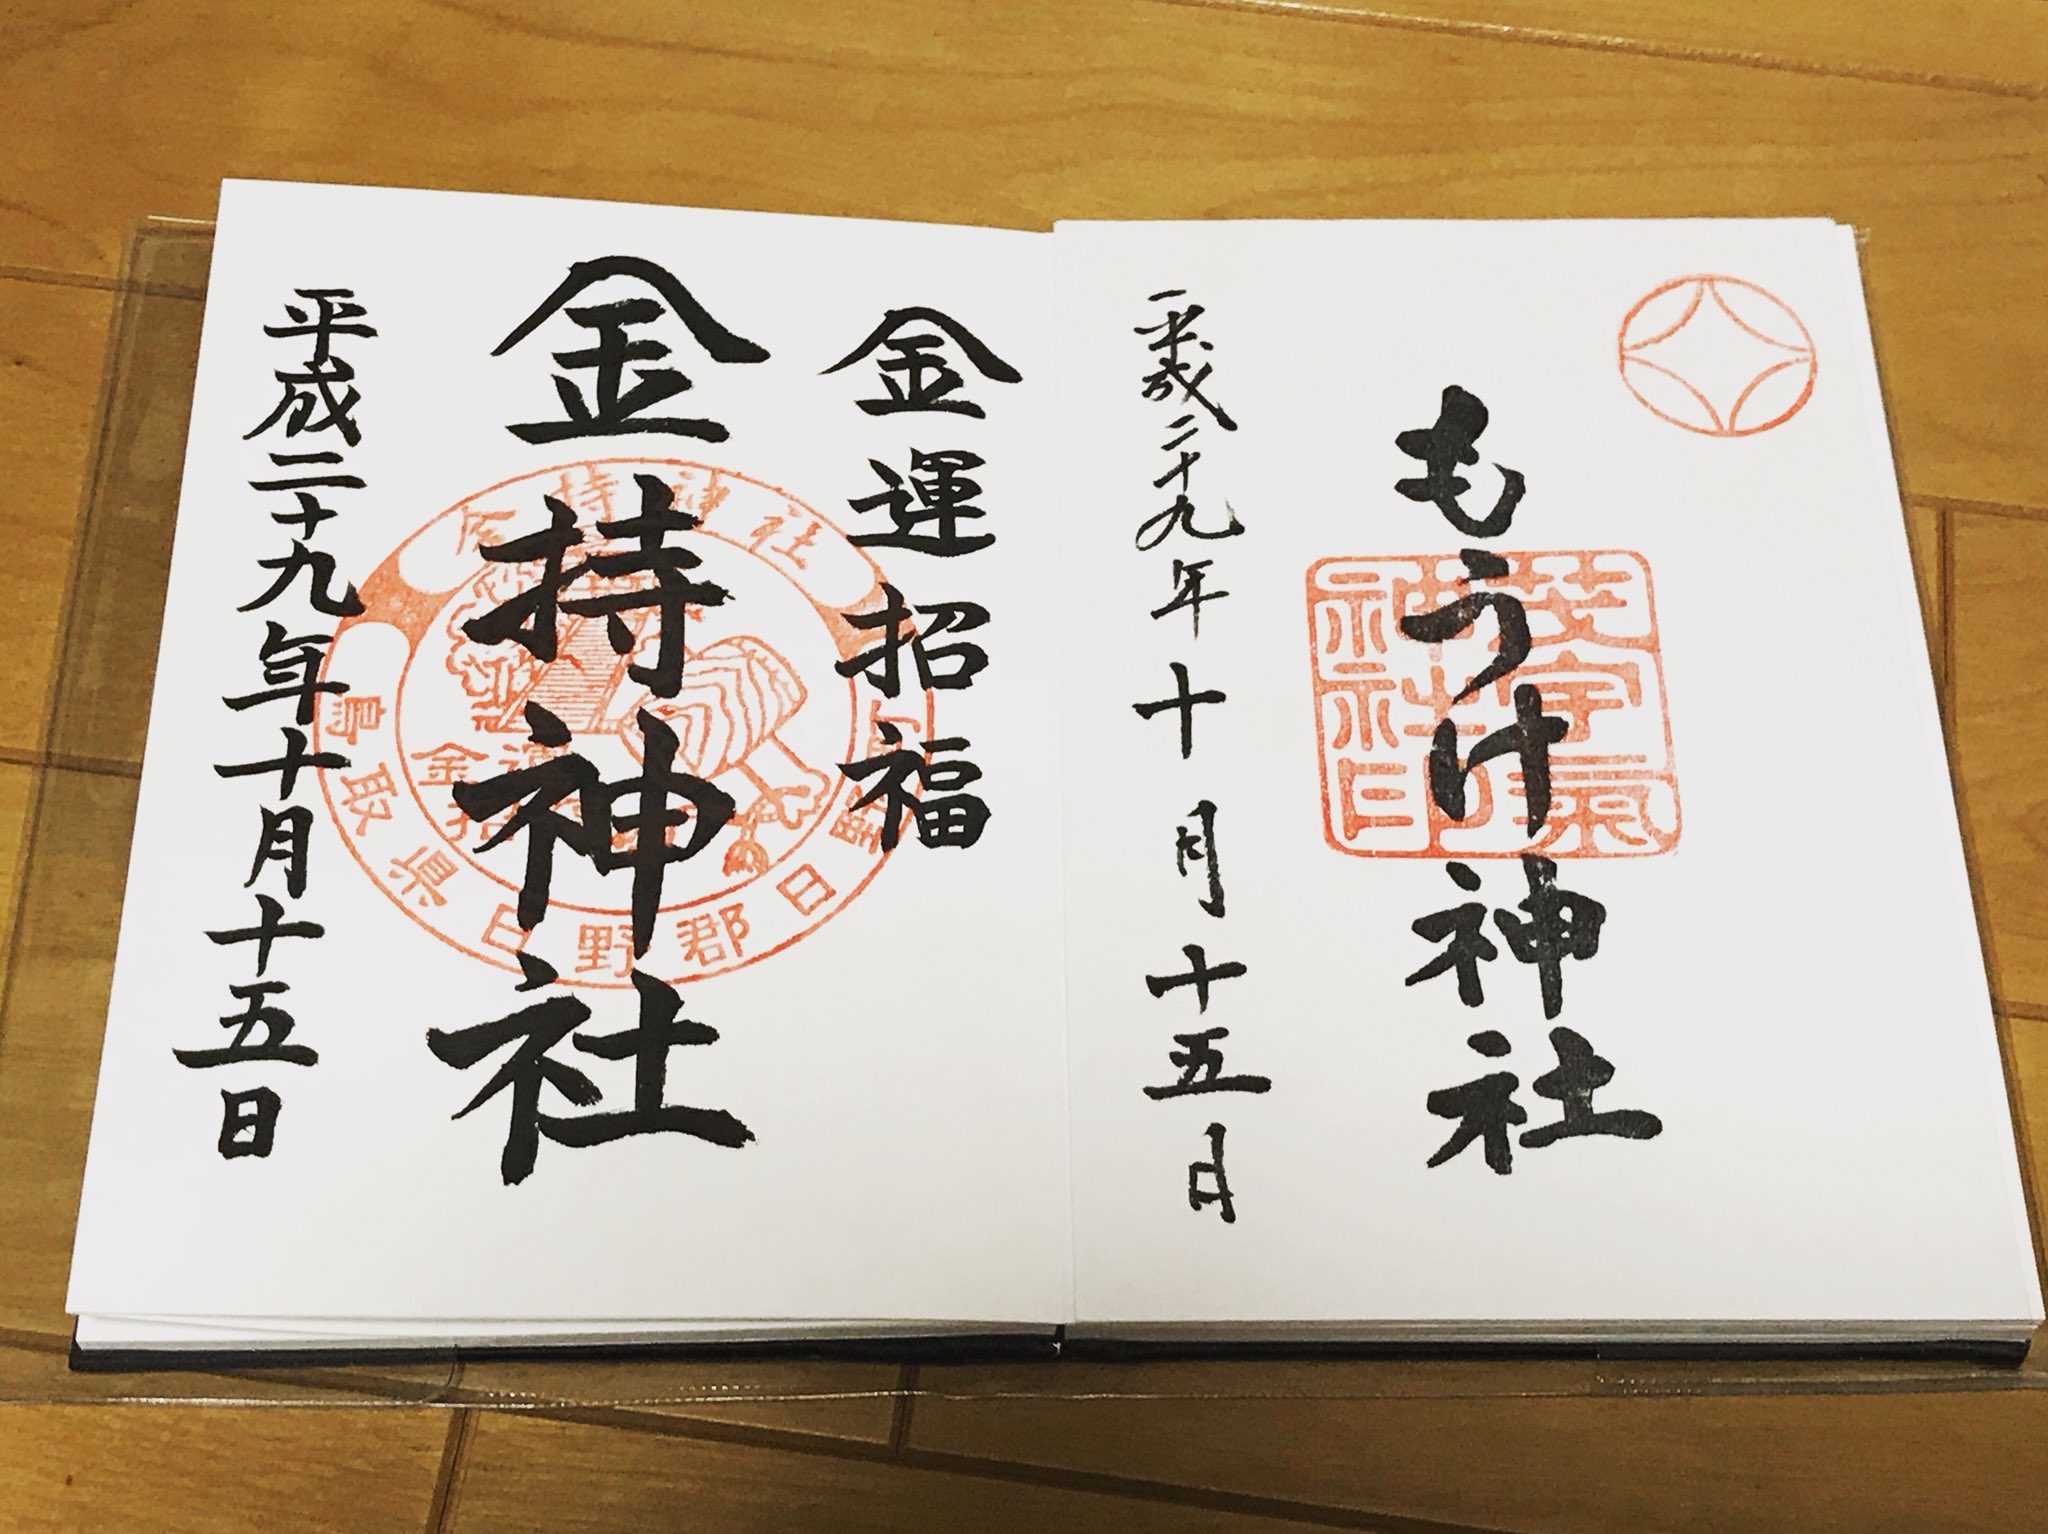 もうけ神社
茂宇氣
神社印
平成二十九年十月十五日
金運招福
金持神社
金持神社
鳥取県日野郡日野
金運
平成二十九年十月十五日